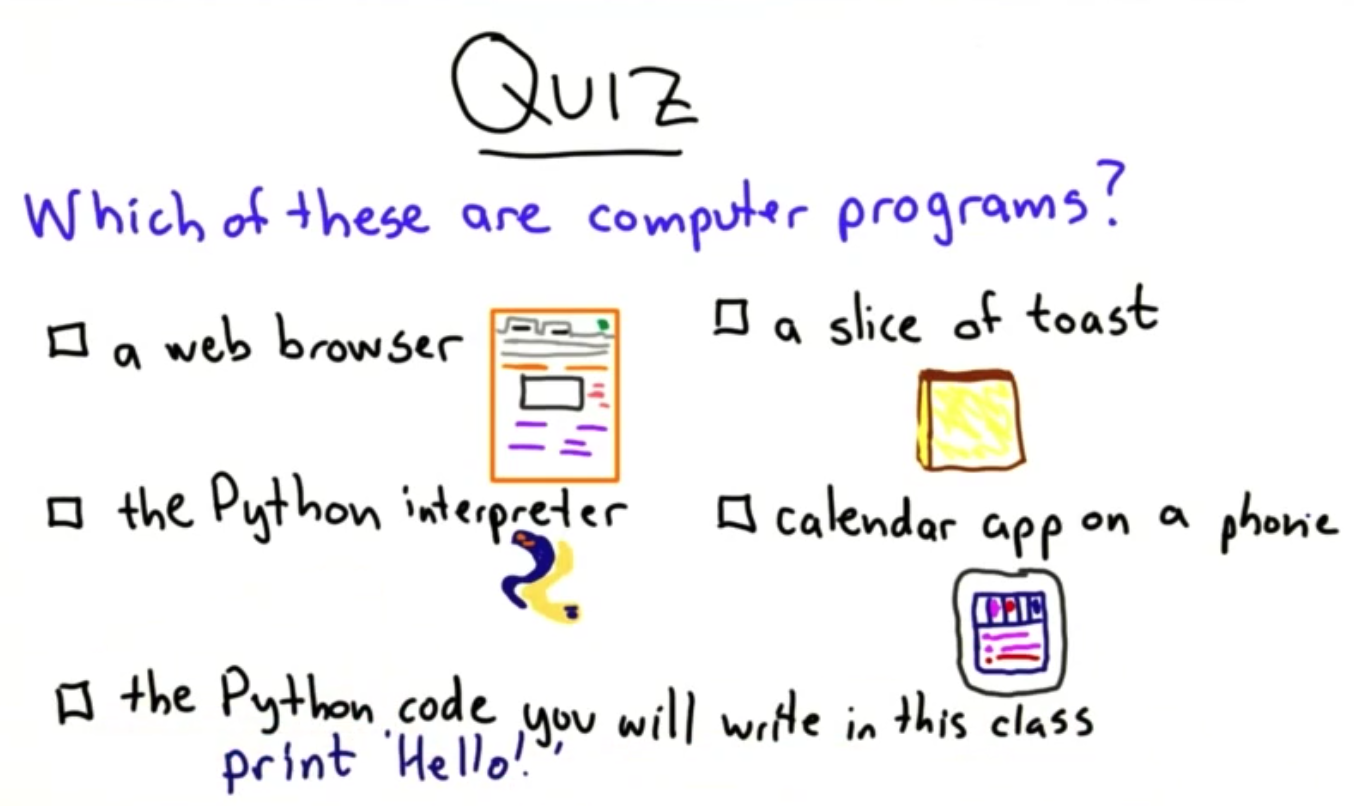 Quiz
Which of these are computer programs?
a web browser
a slice of toast
the Python interpreter
calendar app on a phone
the Python code you will write in this class
print 'Hello!'